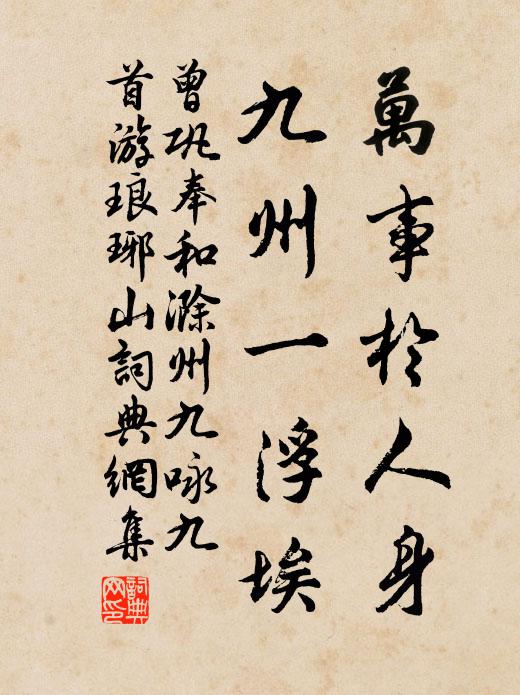 萬事於人身
九州一浮埃
曾巩奉和滁州九咏九
首游琅琊山詞典網集
詞典網印